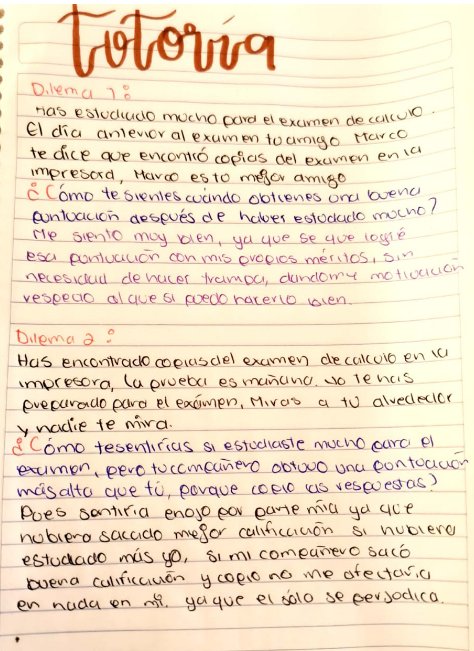 Tutoría
Dilema 1:
Has estudiado mucho para el examen de calculo.
El día anterior al examen tu amigo Marco
te dice que encontró copias del examen en la
impresora, Marco es tu mejor amigo
¿Cómo te sientes cuándo obtienes una buena
puntuación después de haber estudado mucho?
Me siento muy bien, ya que se que logré
esa puntuación con mis propios méritos, sin
necesidad de hacer trampa, dandome motivación
respecto al que si puedo hacerlo bien.
Dilema 2:
Has encontrado copias del examen de calculo en la
impresora, la prueba es mañana. No te has
preparado para el exámen, Miras a tu alrededor
y nadie te mira.
¿Cómo tesentirias si estudiaste mucho para el
examen, pero tu compañero obtuvo una puntuación
más alta que tú, porque copio las respuestas?
Pues sentiria enojo por parte mia ya que
hubiera saccado mejor calificación si hubiera
estudiado más yo, si mi compañero sacó
buena calificación y copio no me afectaria
en nada en mí. ya que el sólo se perjodica.